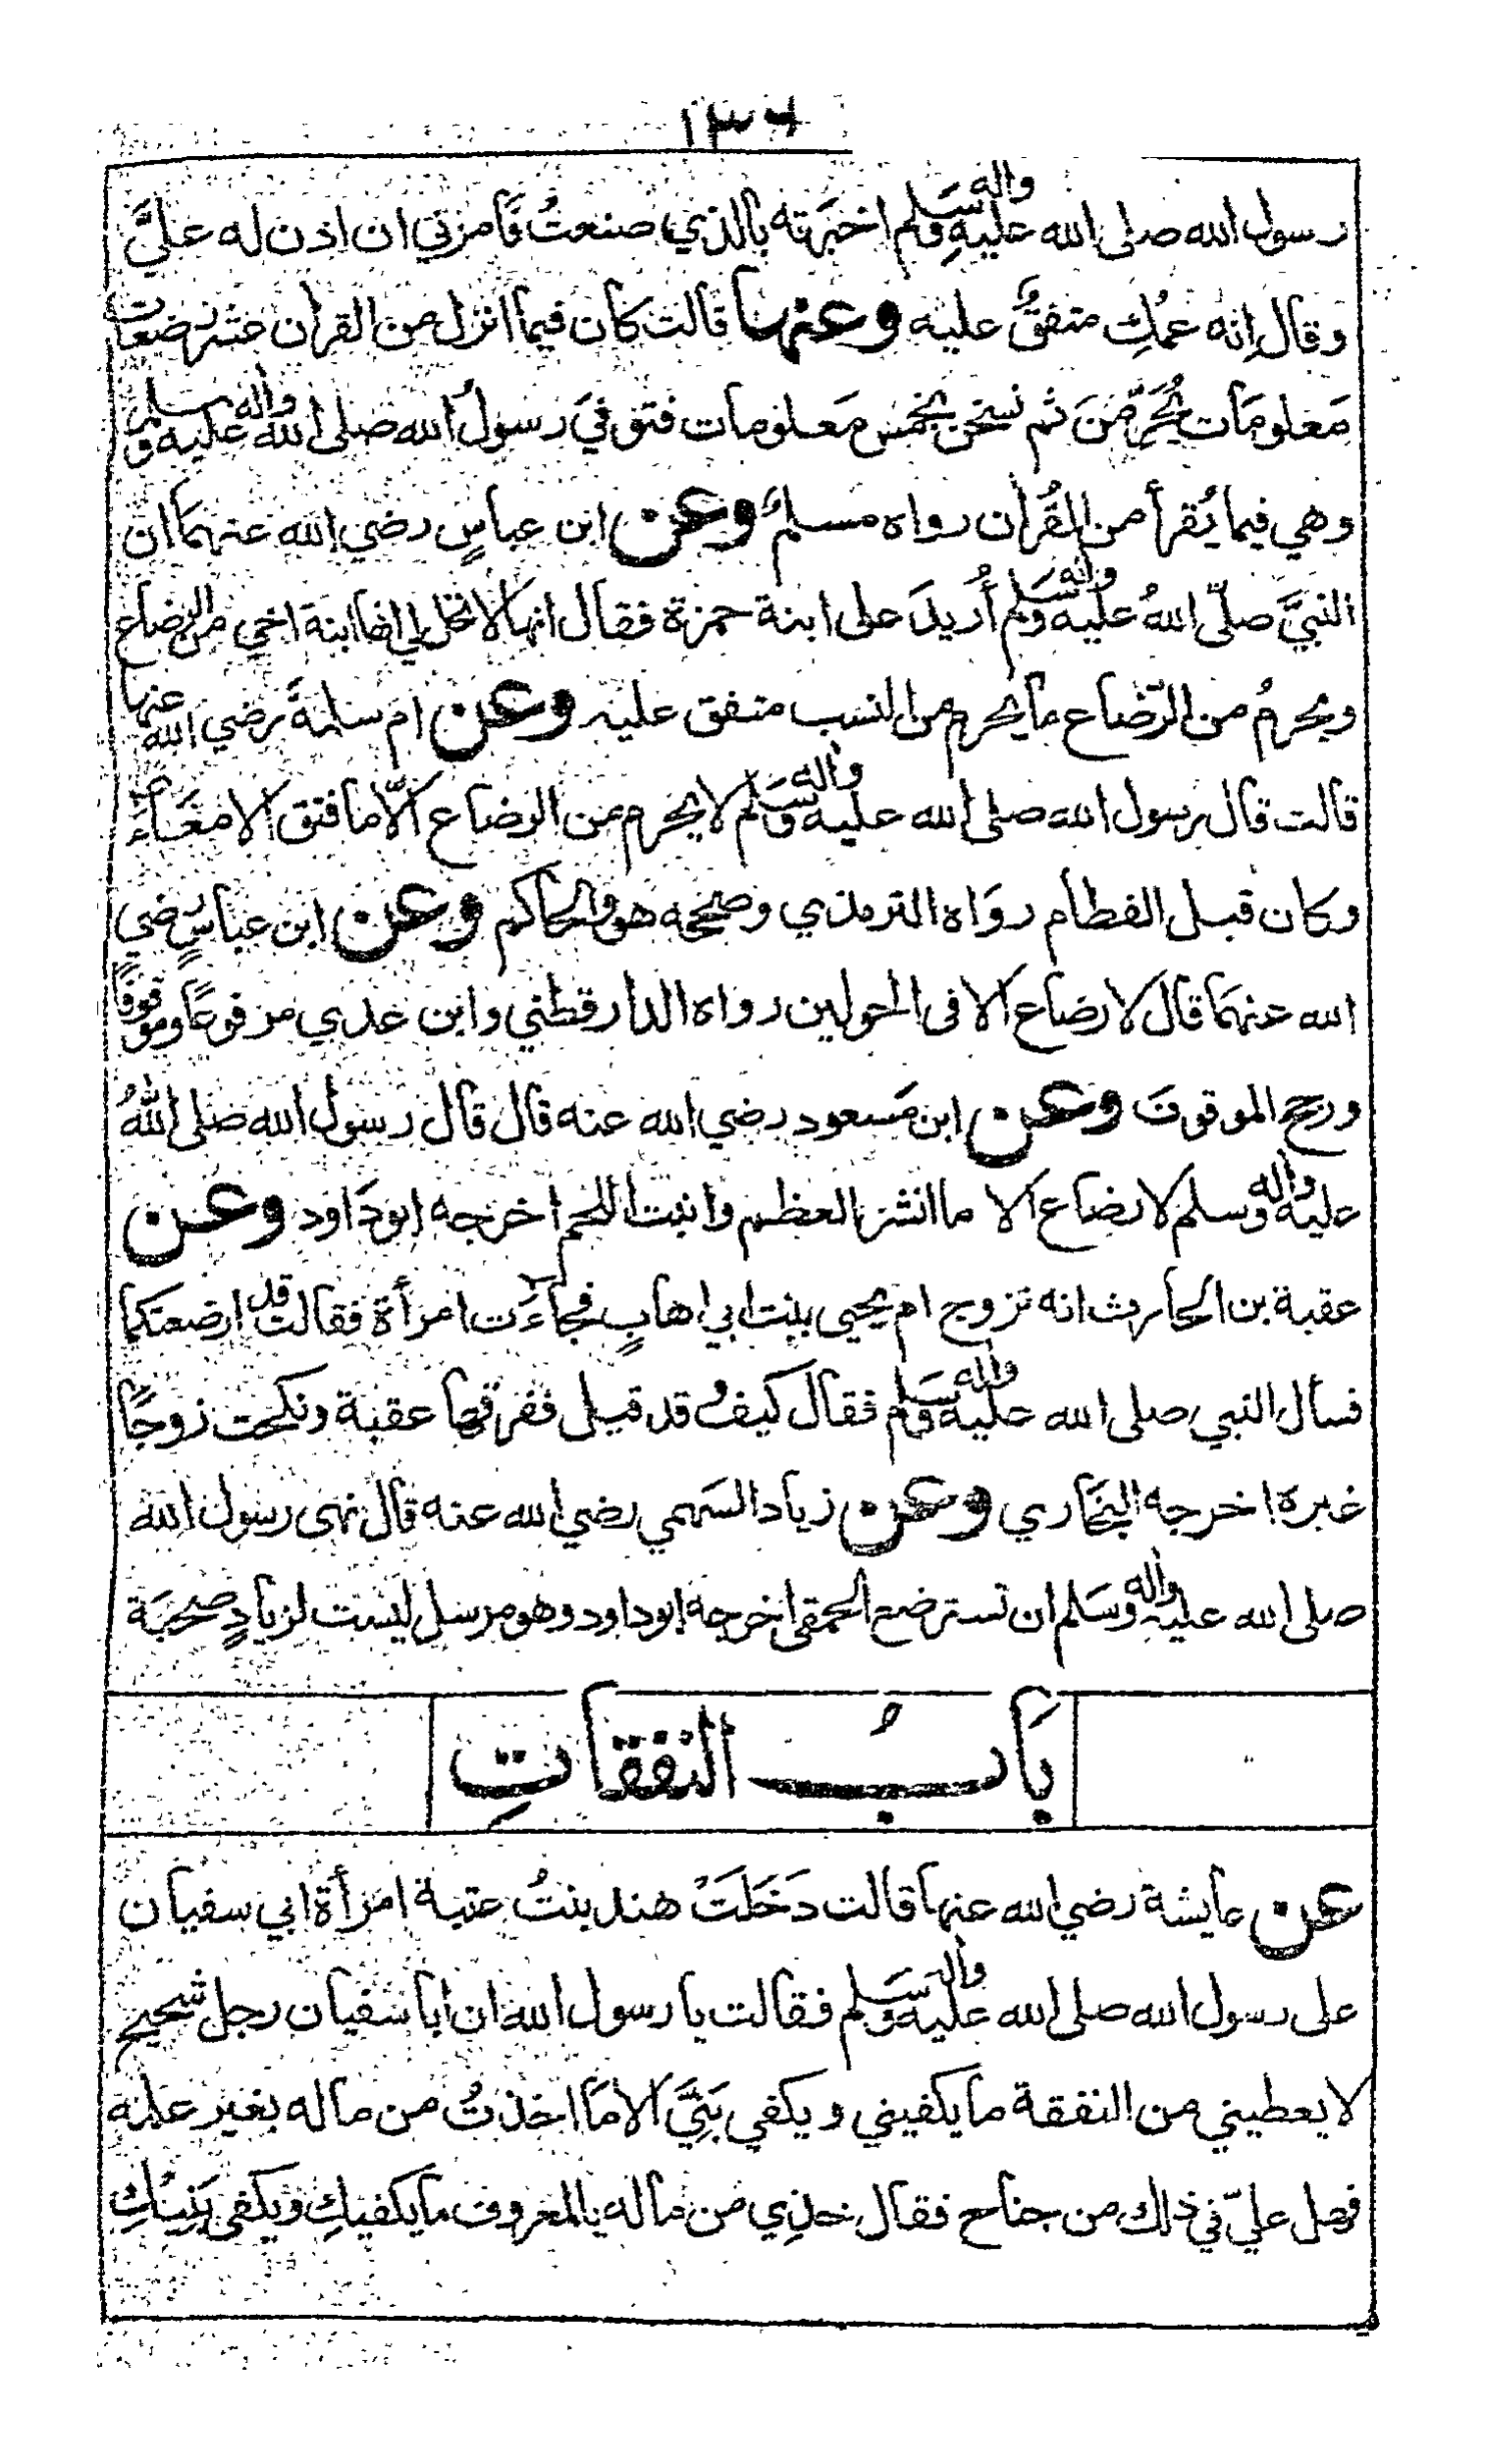 ١٣٦
رسول الله صلى الله عليه واله وسلم اخبرته بالذي صنعتُ فامرني ان اذن له عليَّ
وقال انه عمكِ متفقٌ عليه وعنها قالت كان فيما انزل من القران عشر رضعات
معلومات يُحرّمن ثم نسخن بخمس معلومات فتوفي رسول الله صلى الله عليه واله وسلم
وهي فيما يُقرأ من القُرأن رواه مسلمٌ وعن ابن عباسٍ رضي الله عنهما ان
النبيَّ صلّى اللهُ عليه واله وسلم أُريدَ على ابنة حمزة فقال انها لا تحل لي انها ابنة اخي من الرضاع
ويحرمُ من الرّضاع ما يحرم من النسب متفق عليه وعن ام سلمة رضي الله عنها
قالت قال رسول الله صلى الله عليه واله وسلم لا يحرم من الرضاع الّا ما فتق الامعَاءَ
وكان قبل الفطام روَاه الترمذي وصححه هو والحاكم وعن ابن عباسٍ رضي
الله عنهما قال لا رضاع الا فى الحولين رواه الدارقطني وابن عدي مرفوعًا وموقوفًا
ورجح الموقوف وعن ابن مَسعود رضي الله عنه قال قال رسول الله صلى اللهُ
عليه واله وسلم لا رضاع الا ما انشز العظم وانبت اللحم اخرجه ابودَاود وعن
عقبة بن الحارث انه تزوج ام يحيى بنت ابي اهابٍ فجاءَت امرأة فقالت قد ارضعتكما
فسأل النبي صلى الله عليه واله وسلم فقال كيف وقد قيل ففرقها عقبة ونكحت زوجًا
غيره اخرجه البخاري وعن زياد السَهمي رضي الله عنه قال نهى رسول الله
صلى الله عليه واله وسَلم ان تسترضع الحمقى اخرجه ابوداود وهو مرسل ليست لزيادٍ صحبَة
بَابُ النفقاتِ
عن عايشة رضي الله عنها قالت دَخَلَتْ هند بنتُ عتبة امرأة ابي سفيان
على رسول الله صلى الله عليه واله وسلم فقالت يا رسول الله ان ابا سفيان رجل شحيح
لا يعطيني من النفقة ما يكفيني ويكفي بَنِيَّ الا مَا اخذتُ من ماله بغير علمه
فهل عليّ في ذلك من جناح فقال خذِي من ماله بالمعروف ما يكفيكِ ويكفى بَنِيْكِ